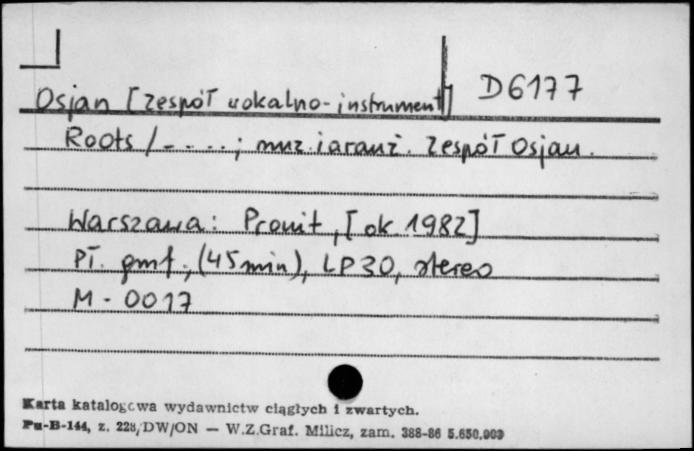 Osjan [zespół wokalno-instrument] D6177
Roots / - - . . . ; muz. i aranż. Zespół Osjan.
Warszawa: Pronit, [ok. 1982]
Pł. gmf., (45 min), LP30, stereo
M - 0017
Karta katalogowa wydawnictw ciągłych i zwartych.
Pu-B-144, z. 228/DW/ON — W.Z.Graf. Milicz, zam. 388-86 5.650.003